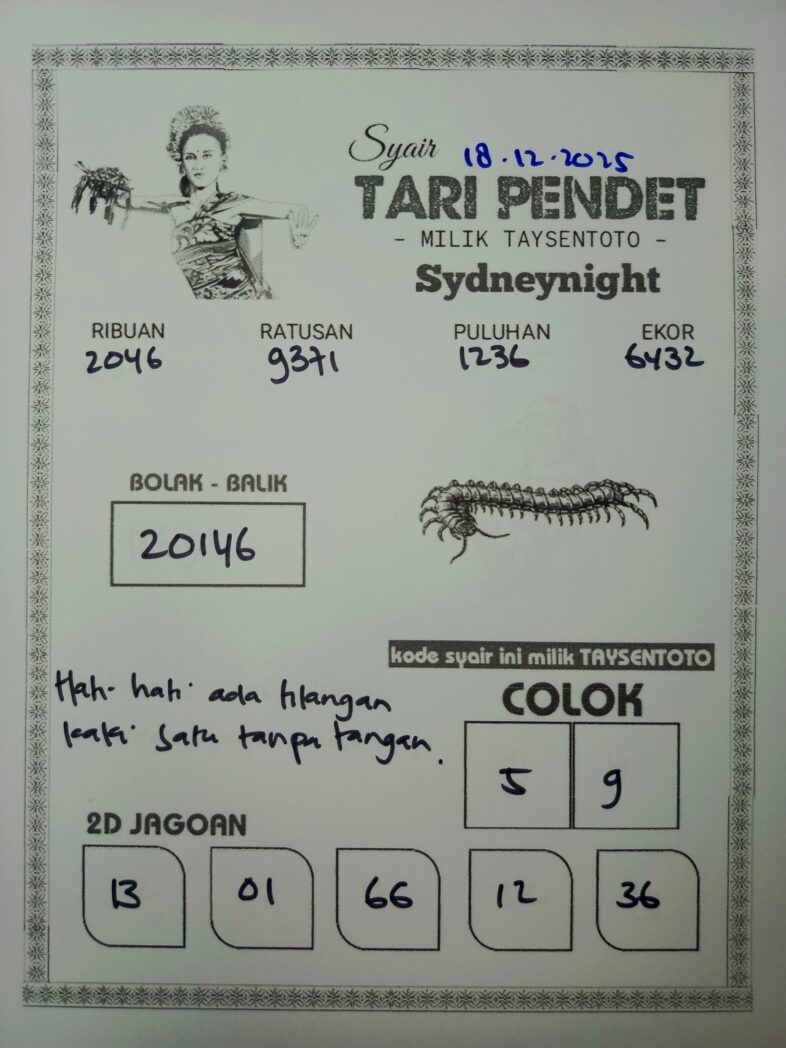 Syair 18.12.2025
TARI PENDET
- MILIK TAYSENTOTO -
Sydneynight
RIBUAN RATUSAN PULUHAN EKOR
2046 9371 1236 6432
BOLAK - BALIK
20146
kode syair ini milik TAYSENTOTO
Hati-hati ada tilangan
kaki satu tanpa tangan.
COLOK
5 9
2D JAGOAN
13 01 66 12 36